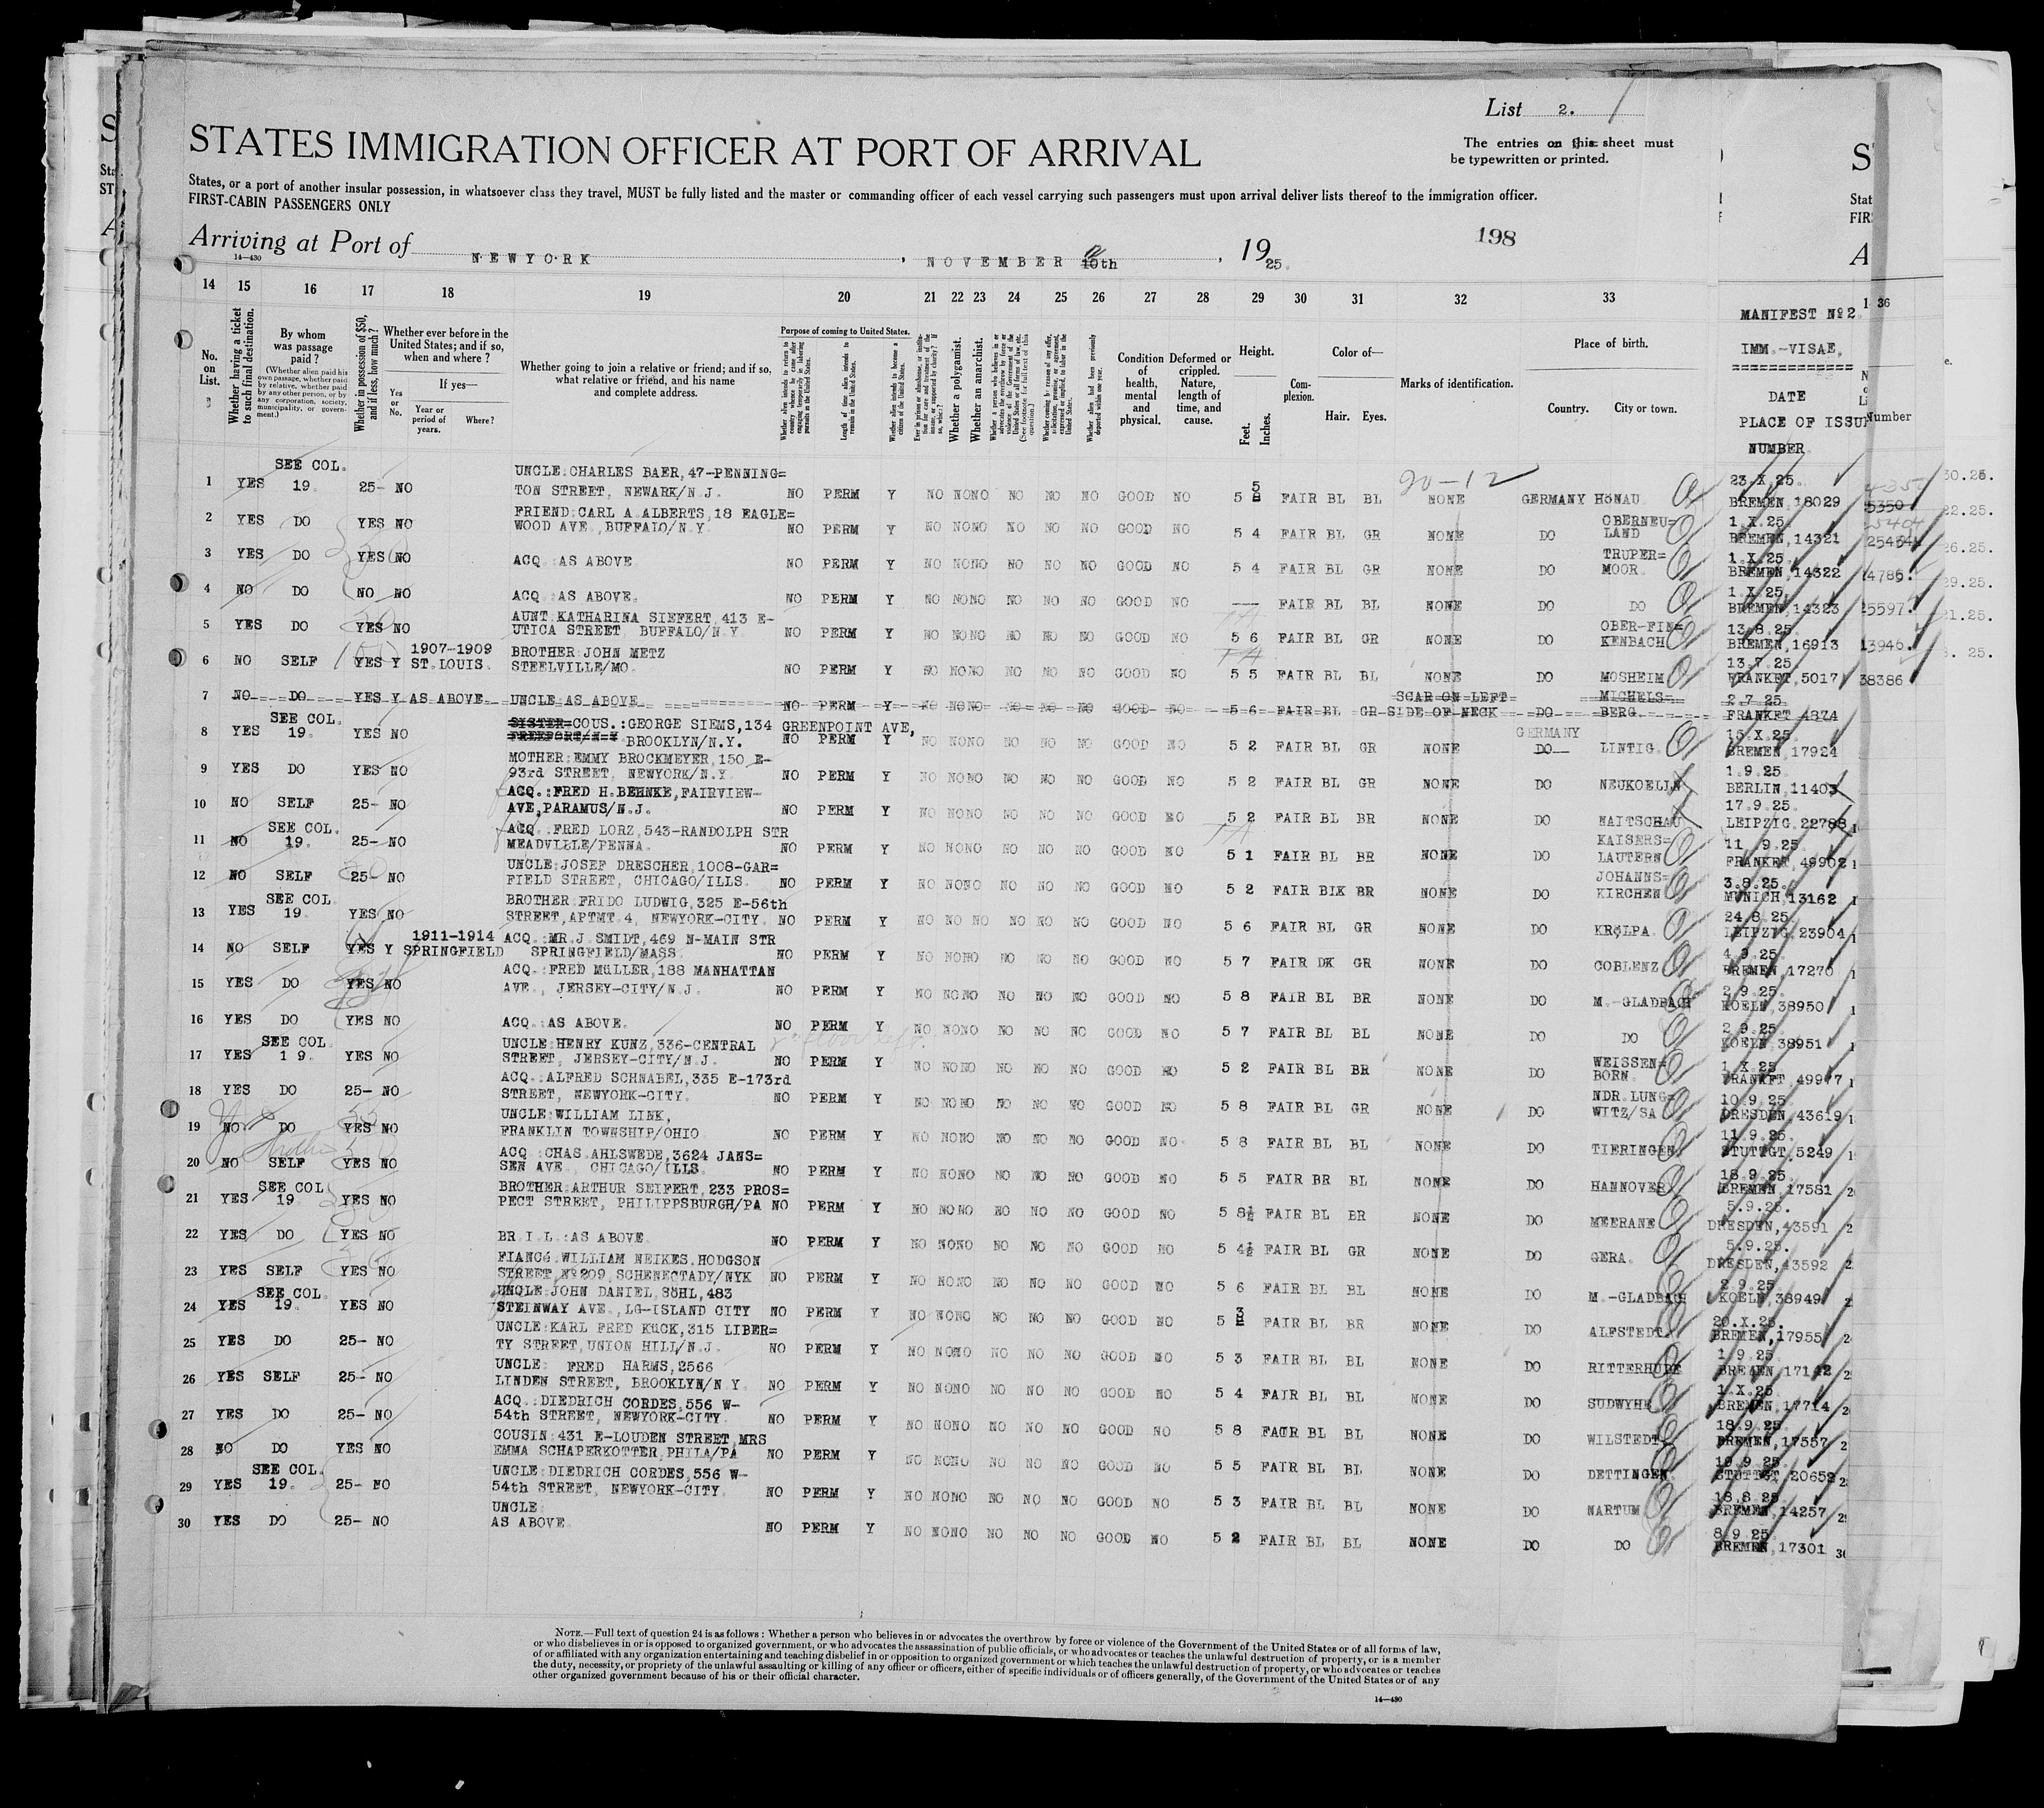 List 2.
STATES IMMIGRATION OFFICER AT PORT OF ARRIVAL
The entries on this sheet must
be typewritten or printed.
States, or a port of another insular possession, in whatsoever class they travel, MUST be fully listed and the master or commanding officer of each vessel carrying such passengers must upon arrival deliver lists thereof to the immigration officer.
FIRST-CABIN PASSENGERS ONLY
Arriving at Port of NEWYORK, NOVEMBER 10th, 1925.
198
14—430
14 15 16 17 18 19 20 21 22 23 24 25 26 27 28 29 30 31 32 33
No. on List.
Whether having a ticket to such final destination.
By whom was passage paid?
(Whether alien paid his own passage, whether paid by relative, whether paid by any other person, or by any corporation, society, municipality, or government.)
Whether in possession of $50, and if less, how much?
Whether ever before in the United States; and if so, when and where?
Yes or No.
If yes—
Year or period of years.
Where?
Whether going to join a relative or friend; and if so, what relative or friend, and his name and complete address.
Purpose of coming to United States.
Length of time alien intends to remain in the United States.
Whether alien intends to become a citizen of the United States.
Whether a polygamist.
Whether an anarchist.
Condition of health, mental and physical.
Deformed or crippled. Nature, length of time, and cause.
Height.
Feet. Inches.
Complexion.
Color of—
Hair. Eyes.
Marks of identification.
Place of birth.
Country. City or town.
MANIFEST Nº2
IMM.-VISAE,
DATE
PLACE OF ISSU
NUMBER
Number
20-12
1 YES SEE COL. 19. 25- NO UNCLE:CHARLES BAER,47-PENNING=
TON STREET, NEWARK/N.J. NO PERM Y NO NO NO NO NO NO GOOD NO 5 5 FAIR BL BL NONE GERMANY HöNAU 23.X.25. BREMEN 18029
2 YES DO YES NO FRIEND:CARL A.ALBERTS,18 EAGLE=
WOOD AVE.,BUFFALO/N.Y. NO PERM Y NO NO NO NO NO NO GOOD NO 5 4 FAIR BL GR NONE DO OBERNEU=LAND 1.X.25. BREMEN,14321
3 YES DO YES NO ACQ.:AS ABOVE NO PERM Y NO NO NO NO NO NO GOOD NO 5 4 FAIR BL GR NONE DO TRUPER=MOOR. 1.X.25. BREMEN,14322
4 NO DO NO NO ACQ.:AS ABOVE. NO PERM Y NO NO NO NO NO NO GOOD NO — FAIR BL BL NONE DO DO 1.X.25. BREMEN,14323
5 YES DO YES NO AUNT:KATHARINA SIEFERT,413 E-
UTICA STREET, BUFFALO/N.Y. NO PERM Y NO NO NO NO NO NO GOOD NO 5 6 FAIR BL GR NONE DO OBER-FIN=KENBACH 13.8.25. BREMEN,16913
6 NO SELF YES Y 1907-1909 ST.LOUIS. BROTHER:JOHN METZ
STEELVILLE/MO. NO PERM Y NO NO NO NO NO NO GOOD NO 5 5 FAIR BL BL NONE DO MOSHEIM 13.7.25. FRANKFT,5017
7 NO DO YES Y AS ABOVE. UNCLE:AS ABOVE NO PERM Y NO NO NO NO NO NO GOOD NO 5 6 FAIR BL GR SCAR ON LEFT SIDE OF NECK DO MICHELS=BERG. 2.7.25 FRANKFT 4874
8 YES SEE COL. 19. YES NO SISTER=COUS.:GEORGE SIEMS,134 GREENPOINT AVE,
FREEPORT/N.Y BROOKLYN/N.Y. NO PERM Y NO NO NO NO NO NO GOOD NO 5 2 FAIR BL GR NONE GERMANY DO LINTIG. 15.X.25. BREMEN 17924
9 YES DO YES NO MOTHER:EMMY BROCKMEYER,150 E-
93rd STREET, NEWYORK/N.Y. NO PERM Y NO NO NO NO NO NO GOOD NO 5 2 FAIR BL GR NONE DO NEUKOELLN 1.9.25. BERLIN,11403
10 NO SELF 25- NO ACQ.:FRED H.BEHNKE,FAIRVIEW-
AVE,PARAMUS/N.J. NO PERM Y NO NO NO NO NO NO GOOD NO 5 2 FAIR BL BR NONE DO NAITSCHAU 17.9.25. LEIPZIG.22788
11 NO SEE COL. 19. 25- NO ACQ.:FRED LORZ,543-RANDOLPH STR
MEADVILLE/PENNA. NO PERM Y NO NO NO NO NO NO GOOD NO 5 1 FAIR BL BR NONE DO KAISERS=LAUTERN 11.9.25. FRANKFT,49902
12 NO SELF 25- NO UNCLE:JOSEF DRESCHER,1008-GAR=
FIELD STREET, CHICAGO/ILLS. NO PERM Y NO NO NO NO NO NO GOOD NO 5 2 FAIR BLK BR NONE DO JOHANNS=KIRCHEN 3.8.25. MUNICH,13162
13 YES SEE COL. 19. YES NO BROTHER:FRIDO LUDWIG,325 E-56th
STREET,APTMT.4, NEWYORK-CITY. NO PERM Y NO NO NO NO NO NO GOOD NO 5 6 FAIR BL GR NONE DO KRöLPA. 24.8.25. LEIPZIG,23904
14 NO SELF YES Y 1911-1914 SPRINGFIELD ACQ.:MR.J.SMIDT,469 N-MAIN STR
SPRINGFIELD/MASS. NO PERM Y NO NO NO NO NO NO GOOD NO 5 7 FAIR DK GR NONE DO COBLENZ 4.9.25. BREMEN,17270
15 YES DO YES NO ACQ.:FRED MüLLER,188 MANHATTAN
AVE., JERSEY-CITY/N.J. NO PERM Y NO NO NO NO NO NO GOOD NO 5 8 FAIR BL BR NONE DO M.-GLADBACH 2.9.25. KOELN,38950
16 YES DO YES NO ACQ.:AS ABOVE. NO PERM Y NO NO NO NO NO NO GOOD NO 5 7 FAIR BL BL NONE DO DO 2.9.25. KOELN,38951
17 YES SEE COL. 19. YES NO UNCLE:HENRY KUNZ,336-CENTRAL
STREET, JERSEY-CITY/N.J. NO PERM Y NO NO NO NO NO NO GOOD NO 5 2 FAIR BL BR NONE DO WEISSEN=BORN. 1.X.25. FRANKFT,49977
18 YES DO 25- NO ACQ.:ALFRED SCHNABEL,335 E-173rd
STREET, NEWYORK-CITY. NO PERM Y NO NO NO NO NO NO GOOD NO 5 8 FAIR BL GR NONE DO NDR.LUNG=WITZ/SA 10.9.25. DRESDEN,43619
19 NO DO YES NO UNCLE:WILLIAM LINK,
FRANKLIN TOWNSHIP/OHIO NO PERM Y NO NO NO NO NO NO GOOD NO 5 8 FAIR BL BL NONE DO TIERINGEN 11.9.25. STUTTGT,5249
20 NO SELF YES NO ACQ.:CHAS.AHLSWEDE,3624 JANS=
SEN AVE., CHICAGO/ILLS. NO PERM Y NO NO NO NO NO NO GOOD NO 5 5 FAIR BR BL NONE DO HANNOVER 18.9.25. BREMEN,17581
21 YES SEE COL. 19 YES NO BROTHER:ARTHUR SEIFERT,233 PROS=
PECT STREET, PHILIPPSBURGH/PA NO PERM Y NO NO NO NO NO NO GOOD NO 5 8½ FAIR BL BR NONE DO MEERANE 5.9.25. DRESDEN,43591
22 YES DO YES NO BR.I.L.:AS ABOVE. NO PERM Y NO NO NO NO NO NO GOOD NO 5 4½ FAIR BL GR NONE DO GERA. 5.9.25. DRESDEN,43592
23 YES SELF YES NO FIANCé:WILLIAM NEIKES.HODGSON
STREET,Nº209,SCHENECTADY/NYK NO PERM Y NO NO NO NO NO NO GOOD NO 5 6 FAIR BL BL NONE DO M.-GLADBACH 2.9.25. KOELN,38949
24 YES SEE COL. 19. YES NO UNCLE:JOHN DANIEL,SöHL,483
STEINWAY AVE.,LG-ISLAND CITY NO PERM Y NO NO NO NO NO NO GOOD NO 5 3 FAIR BL BR NONE DO ALFSTEDT. 20.X.25. BREMEN,17955
25 YES DO 25- NO UNCLE:KARL FRED KüCK,315 LIBER=
TY STREET,UNION HILL/N.J. NO PERM Y NO NO NO NO NO NO GOOD NO 5 3 FAIR BL BL NONE DO RITTERHUDE 1.9.25. BREMEN,17142
26 YES SELF 25- NO UNCLE: FRED HARMS,2566
LINDEN STREET, BROOKLYN/N.Y. NO PERM Y NO NO NO NO NO NO GOOD NO 5 4 FAIR BL BL NONE DO SUDWYHE 1.X.25 BREMEN,17714
27 YES DO 25- NO ACQ.:DIEDRICH CORDES,556 W-
54th STREET, NEWYORK-CITY. NO PERM Y NO NO NO NO NO NO GOOD NO 5 8 FAIR BL BL NONE DO WILSTEDT. 18.9.25. BREMEN,17557
28 NO DO YES NO COUSIN:431 E-LOUDEN STREET,MRS
EMMA SCHAPERKOTTER,PHILA/PA NO PERM Y NO NO NO NO NO NO GOOD NO 5 5 FAIR BL BL NONE DO DETTINGEN 10.9.25. STUTTGT,20652
29 YES SEE COL. 19. 25- NO UNCLE:DIEDRICH CORDES,556 W-
54th STREET, NEWYORK-CITY. NO PERM Y NO NO NO NO NO NO GOOD NO 5 3 FAIR BL BL NONE DO NARTUM 18.8.25. BREMEN,14257
30 YES DO 25- NO UNCLE:
AS ABOVE. NO PERM Y NO NO NO NO NO NO GOOD NO 5 2 FAIR BL BL NONE DO DO 8.9.25. BREMEN,17301
NOTE.—Full text of question 24 is as follows: Whether a person who believes in or advocates the overthrow by force or violence of the Government of the United States or of all forms of law,
or who disbelieves in or is opposed to organized government, or who advocates the assassination of public officials, or who advocates or teaches the unlawful destruction of property, or is a member
of or affiliated with any organization entertaining and teaching disbelief in or opposition to organized government or which teaches the unlawful destruction of property, or who advocates or teaches
the duty, necessity, or propriety of the unlawful assaulting or killing of any officer or officers, either of specific individuals or of officers generally, of the Government of the United States or of any
other organized government because of his or their official character.
14—430